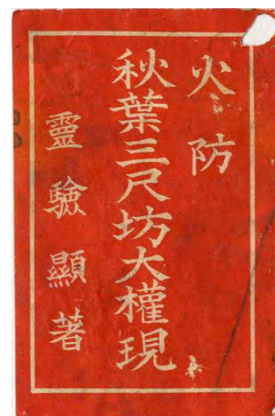 火防
秋葉三尺坊大權現
靈驗顯著